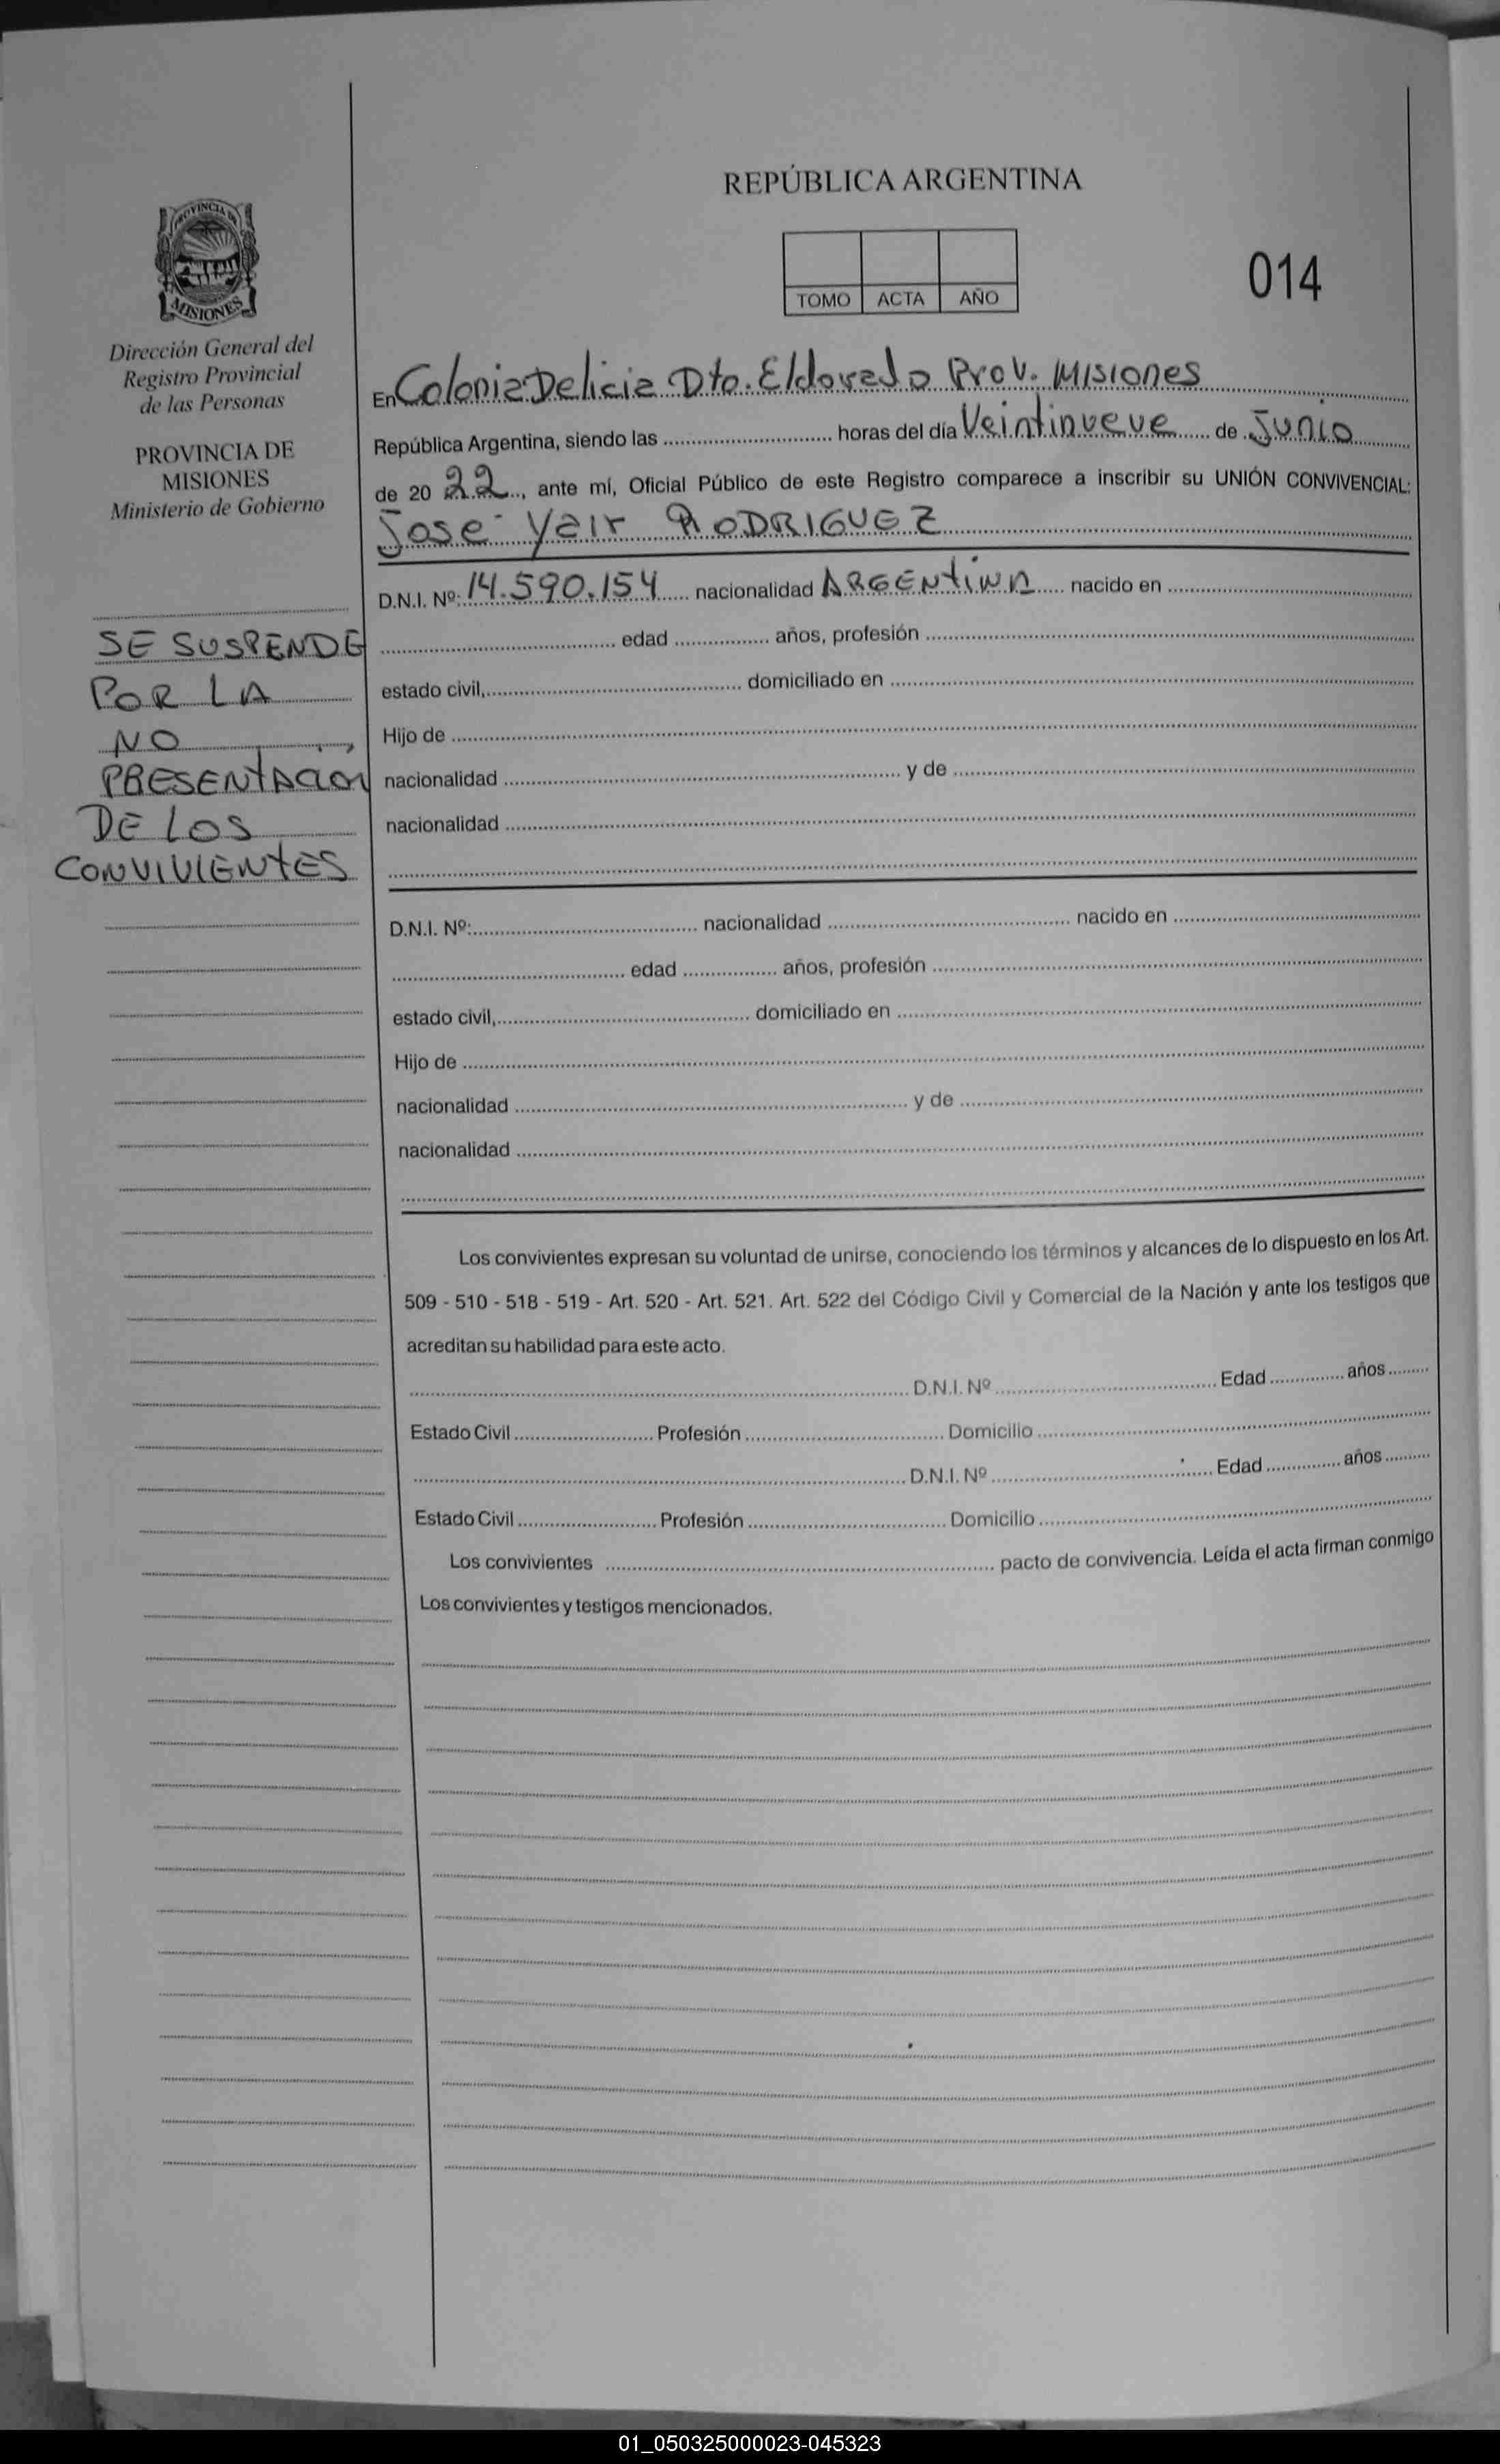 REPÚBLICA ARGENTINA
TOMO ACTA AÑO
014
PROVINCIA DE
MISIONES
Dirección General del
Registro Provincial
de las Personas
PROVINCIA DE
MISIONES
Ministerio de Gobierno
SE SUSPENDE
POR LA
NO
PRESENTACION
DE LOS
CONVIVIENTES
En Colonia Delicia Dto. Eldorado Prov. Misiones
República Argentina, siendo las ........ horas del día Veintinueve de Junio
de 20 22, ante mí, Oficial Público de este Registro comparece a inscribir su UNIÓN CONVIVENCIAL:
Jose Yair RODRIGUEZ
D.N.I. Nº: 14.590.154 nacionalidad ARGENtiNA nacido en ........
........ edad ........ años, profesión ........
estado civil, ........ domiciliado en ........
Hijo de ........
nacionalidad ........ y de ........
nacionalidad ........
D.N.I. Nº: ........ nacionalidad ........ nacido en ........
........ edad ........ años, profesión ........
estado civil, ........ domiciliado en ........
Hijo de ........
nacionalidad ........ y de ........
nacionalidad ........
Los convivientes expresan su voluntad de unirse, conociendo los términos y alcances de lo dispuesto en los Art.
509 - 510 - 518 - 519 - Art. 520 - Art. 521. Art. 522 del Código Civil y Comercial de la Nación y ante los testigos que
acreditan su habilidad para este acto.
........ D.N.I. Nº ........ Edad ........ años ........
Estado Civil ........ Profesión ........ Domicilio ........
........ D.N.I. Nº ........ Edad ........ años ........
Estado Civil ........ Profesión ........ Domicilio ........
Los convivientes ........ pacto de convivencia. Leída el acta firman conmigo
Los convivientes y testigos mencionados.
01_050325000023-045323